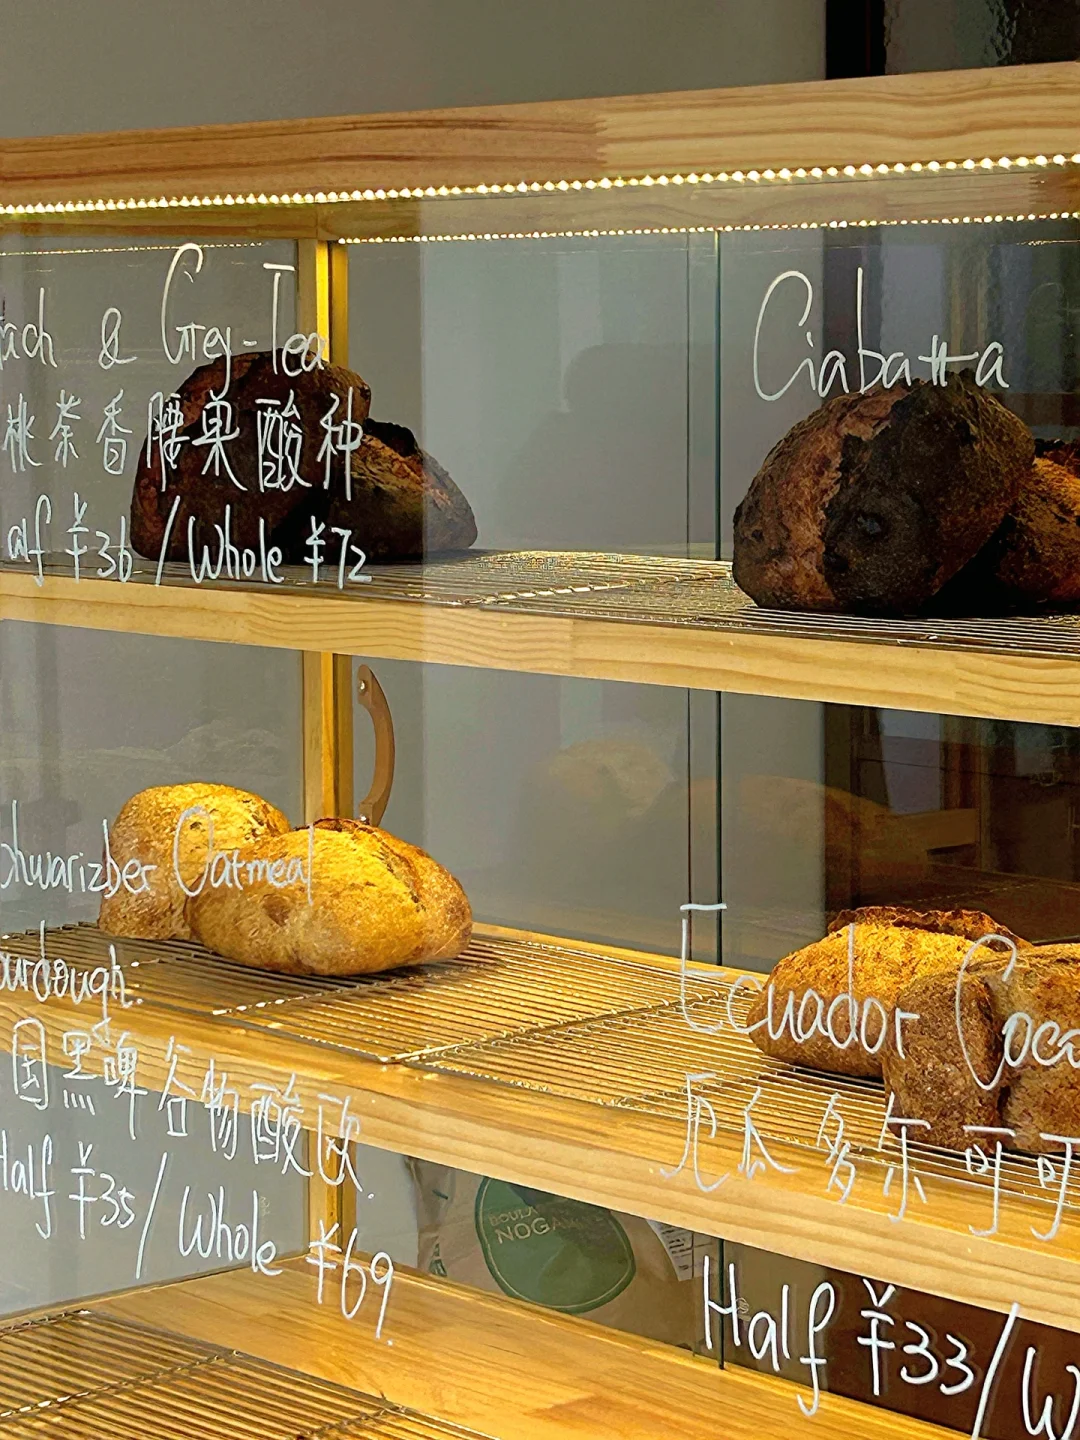 ach & Grey-Tea
桃茶香腰果酸种
alf ¥36 / Whole ¥72
Ciabatta
chwarizber Oatmeal
ourdough:
国黑啤谷物酸欧.
Half ¥35 / Whole ¥69.
Ecuador Coco
厄瓜多尔可可
Half ¥33 / W
NOGA